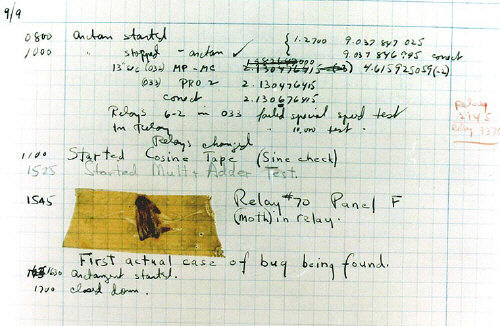 9/9
0800 antan started
1000 " stopped - antan ✓ { 1.2700 9.037 847 025
9.037 846 995 correct
13"uc (032) MP-MC 2.130476415 (-3) 4.615925059(-2)
(033) PRO 2 2.130476415
correct 2.130676415
Relays 6-2 in 033 failed special speed test
in relay " 10,000 test.
Relays changed
Relay
2145
Relay 3370
1100 Started Cosine Tape (Sine check)
1525 Started Mult + Adder Test.
1545 Relay #70 Panel F
(moth) in relay.
First actual case of bug being found.
1630 antangent started.
1700 closed down.